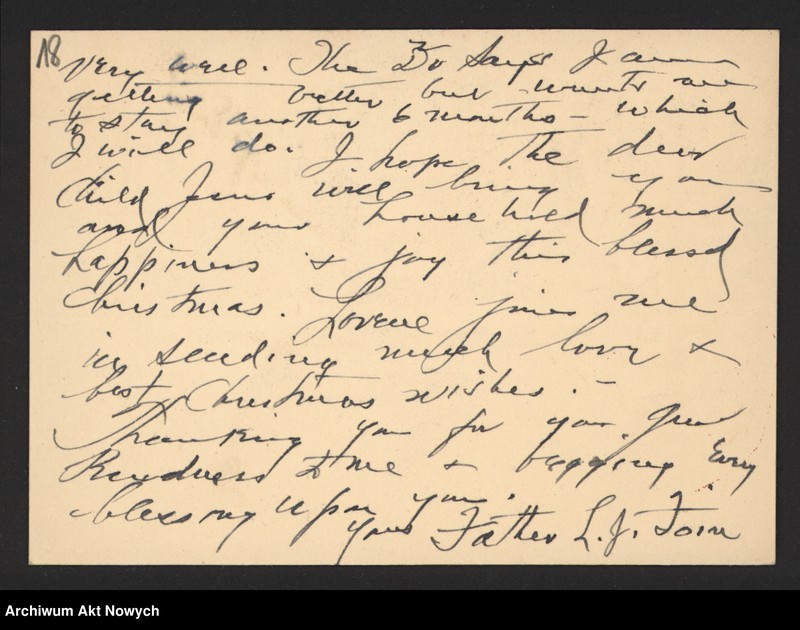 18
very well. The Dr says I am
getting better but wants me
to stay another 6 months - which
I will do. I hope the dear
Child Jesus will bring you
and your household much
happiness & joy this blessed
Christmas. joins me
in sending much love &
best Christmas wishes. -
Thanking you for your great
Kindness to me & begging every
blessing upon you.
Your Father L. J.
Archiwum Akt Nowych